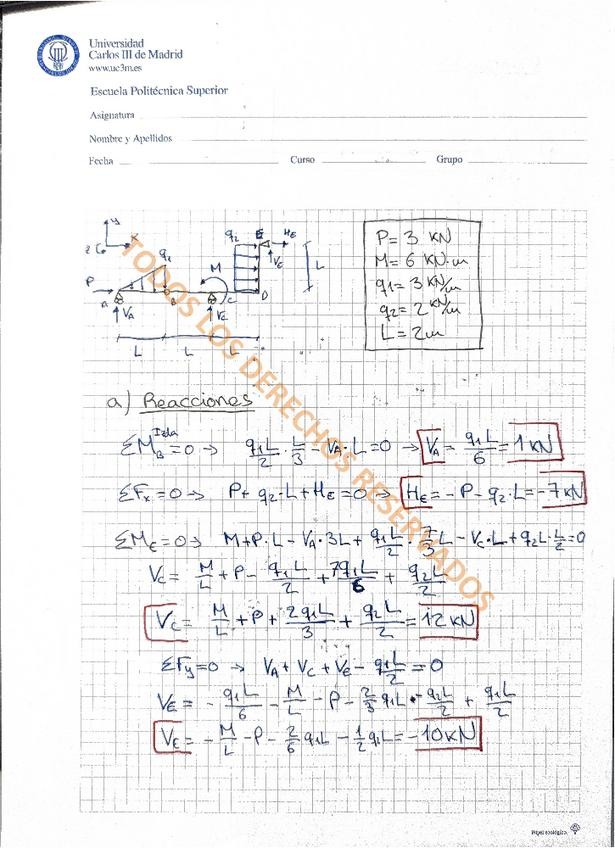 Universidad
Carlos III de Madrid
www.uc3m.es
Escuela Politécnica Superior
Asignatura
Nombre y Apellidos
Fecha Curso Grupo
y
x
z
q1
q2
E
HE
VE
P
M
L
A
B
C
D
VA
VC
L L L
P= 3 KN
M= 6 KN·m
q1= 3 KN/m
q2= 2 KN/m
L= 2m
TODOS LOS DERECHOS RESERVADOS
a) Reacciones
ΣMB^Izda=0 → q1L/2 · L/3 - VA·L=0 → VA= q1L/6 = 1KN
ΣFx=0 → P+q2·L+HE=0 → HE=-P-q2·L=-7KN
ΣME=0 → M+P·L-VA·3L+ q1L/2 · 7/3 L-VC·L+q2L·L/2=0
VC= M/L +P- q1L/2 + 7q1L/6 + q2L/2
VC= M/L +P+ 2q1L/3 + q2L/2 = 12KN
ΣFy=0 → VA+VC+VE- q1L/2 =0
VE= - q1L/6 - M/L -P- 2/3 q1L - q2L/2 + q1L/2
VE= - M/L -P- 2/6 q1L - 1/2 q2L=-10KN
Papel ecológico